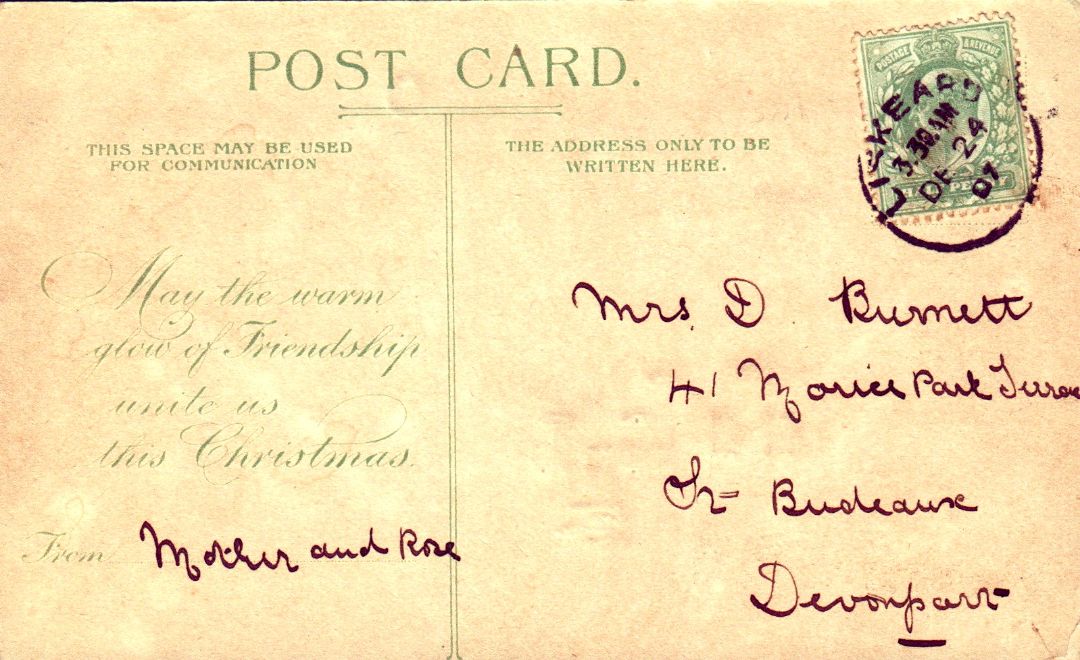 POST CARD.
THIS SPACE MAY BE USED
FOR COMMUNICATION
THE ADDRESS ONLY TO BE
WRITTEN HERE.
POSTAGE & REVENUE
LISKEARD
3.30 AM
DE 24
07
May the warm
glow of Friendship
unite us
this Christmas.
From Mother and Rose
Mrs. D. Burnett
41 Morice Park Terrace
St Budeaux
Devonport